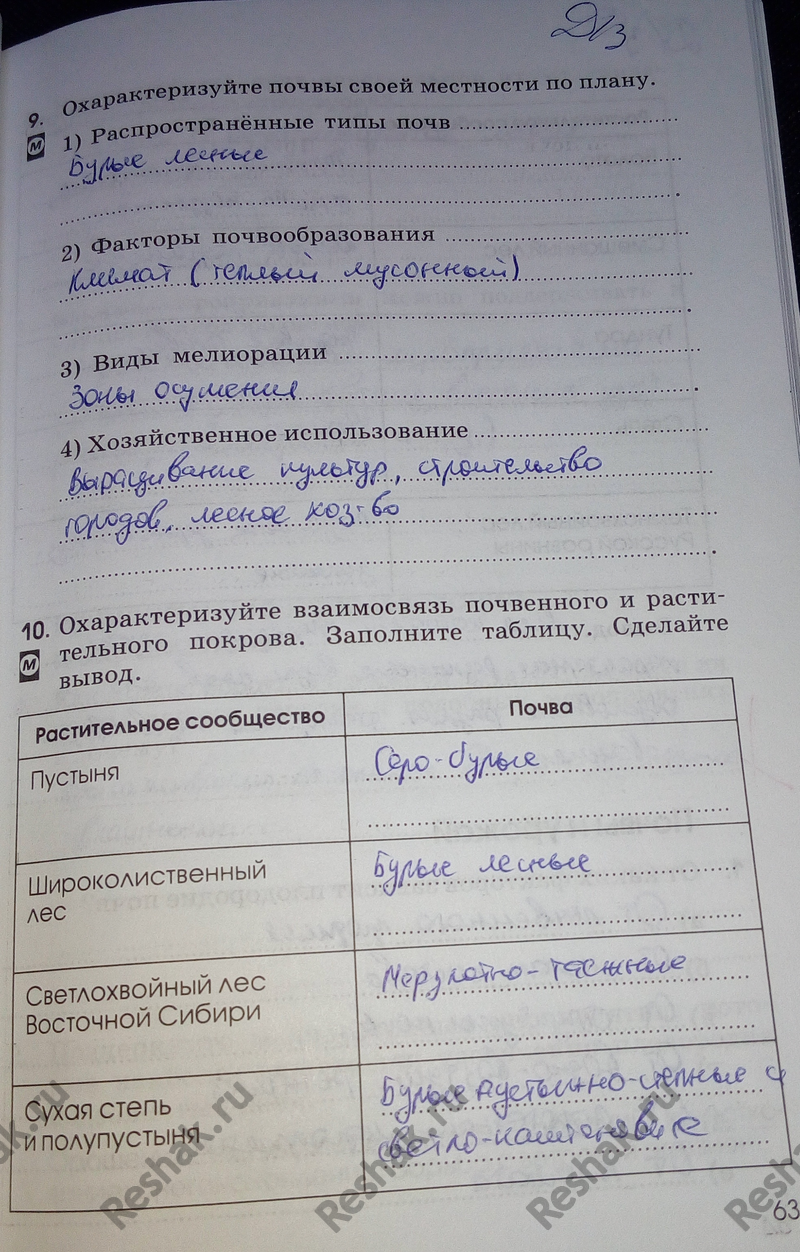 Д/з
9. Охарактеризуйте почвы своей местности по плану.
М 1) Распространённые типы почв
Бурые лесные
2) Факторы почвообразования
Климат (теплый муссонный)
3) Виды мелиорации
Зоны осушения
4) Хозяйственное использование
Выращивание культур, строительство
городов, лесное хоз-во
10. Охарактеризуйте взаимосвязь почвенного и расти-
М тельного покрова. Заполните таблицу. Сделайте
вывод.
Растительное сообщество Почва
Пустыня Серо-бурые
Широколиственный Бурые лесные
лес
Светлохвойный лес Мерзлотно-таежные
Восточной Сибири
Сухая степь Бурые пустынно-степные и
и полупустыня светло-каштановые
63
Reshak.ru Reshak.ru Reshak.ru